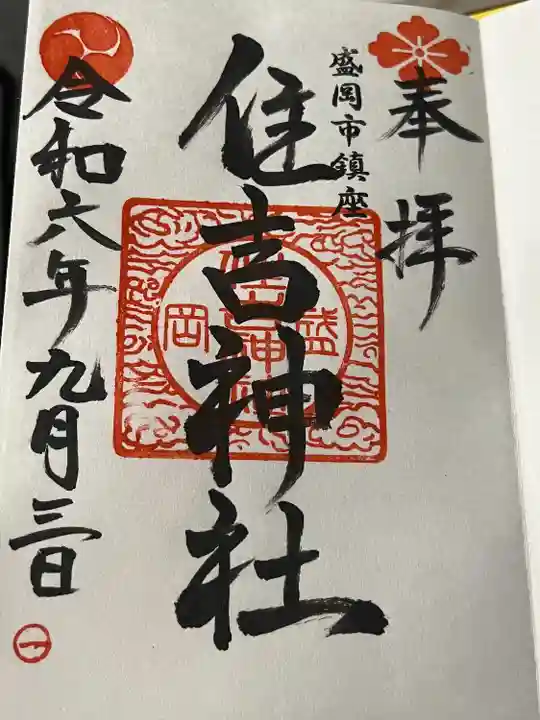 奉拝
盛岡市鎮座
住吉神社
盛岡
令和六年九月三日
一